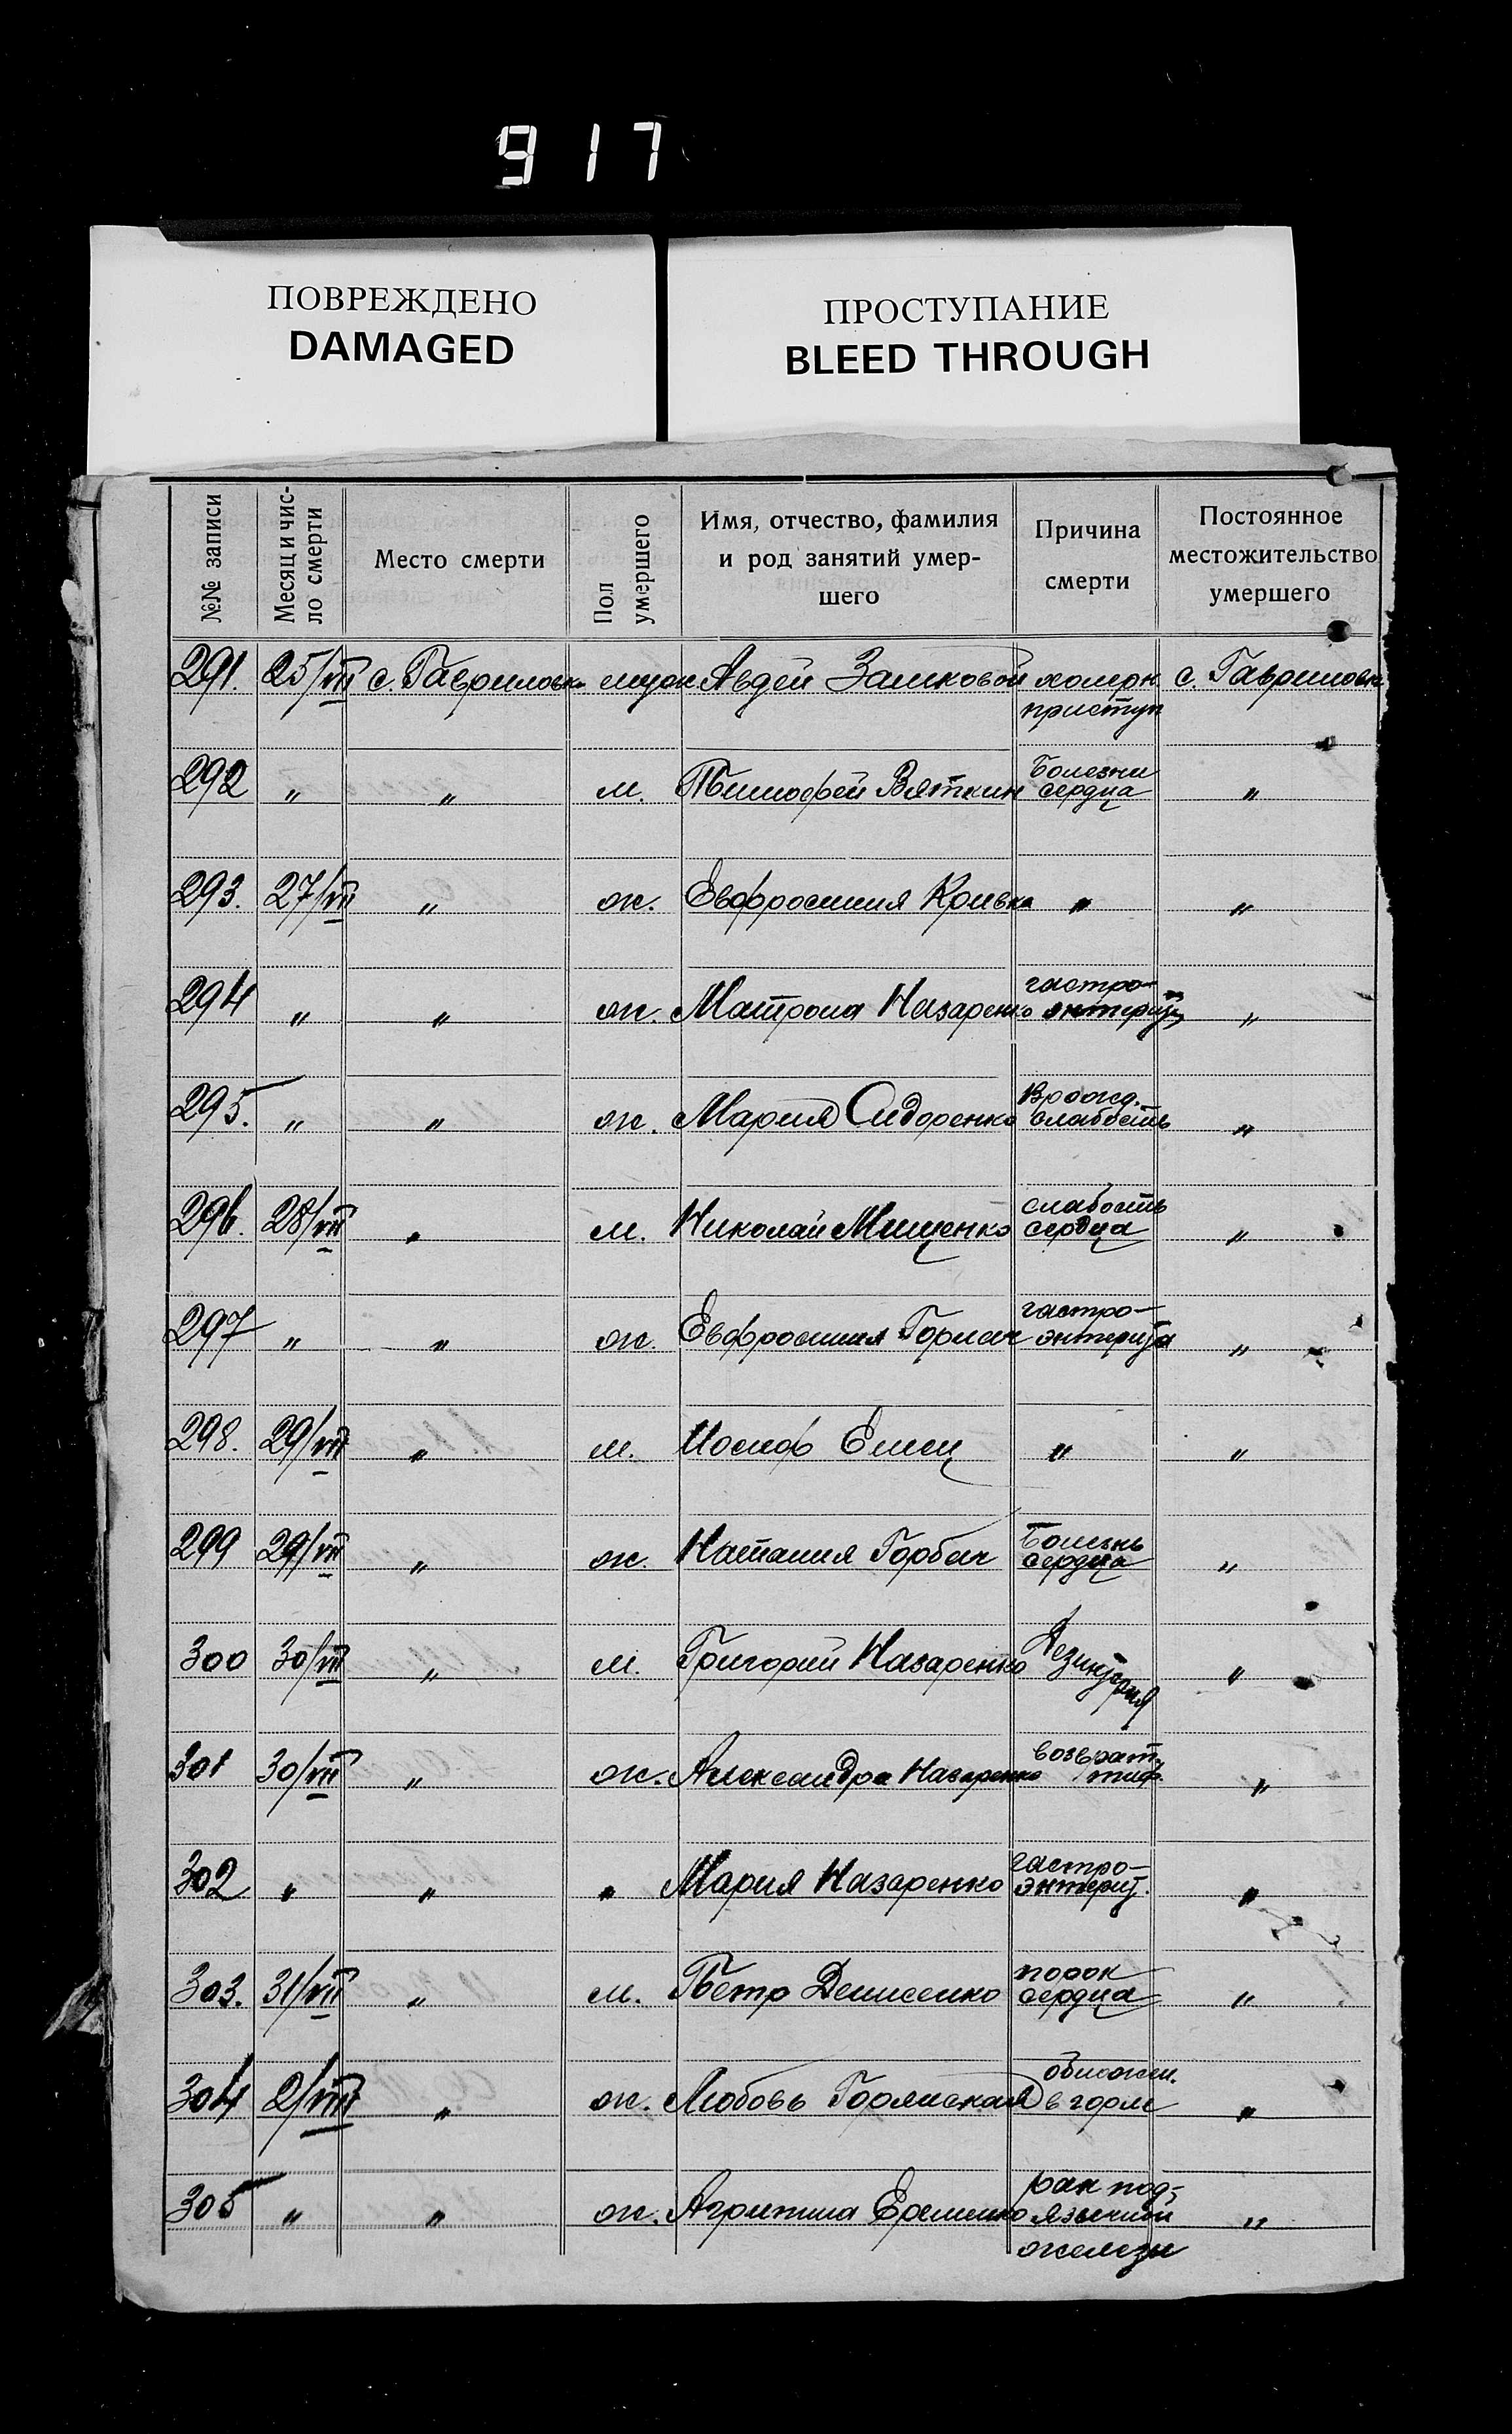 917
ПОВРЕЖДЕНО
DAMAGED
ПРОСТУПАНИЕ
BLEED THROUGH
№№ записи
Месяц и чис-
ло смерти
Место смерти
Пол
умершего
Имя, отчество, фамилия
и род занятий умер-
шего
Причина
смерти
Постоянное
местожительство
умершего
291. 25/VII с. Гавриловка муж. Авдей Замковой холерн. с. Гавриловка
приступ
Болезни
292 " " м. Тимофей Вяткин сердца "
293. 27/VII " ж. Евфросиния Кривка " "
гастро-
294 " " ж. Матрона Назаренко энтерит "
Врожд.
295. " " ж. Мария Сидоренко слабость "
слабость
296. 28/VII " м. Николай Мищенко сердца "
гастро-
297 " " ж. Евфросиния энтерита "
298. 29/VII " м. Иосиф Емец " "
Болезнь
299 29/VII " ж. Наталия Горбач сердца "
300 30/VII " м. Григорий Назаренко Дезинтерия "
возврат.
301 30/VII " ж. Александра Назаренко тиф. "
гастро-
302 " " " Мария Назаренко энтерит. "
порок
303. 31/VII " м. Петр Денисенко сердца "
304 2/VIII " ж. Любовь в горле "
рак под-
305 " " ж. Агриппина Еременко язычной "
железы